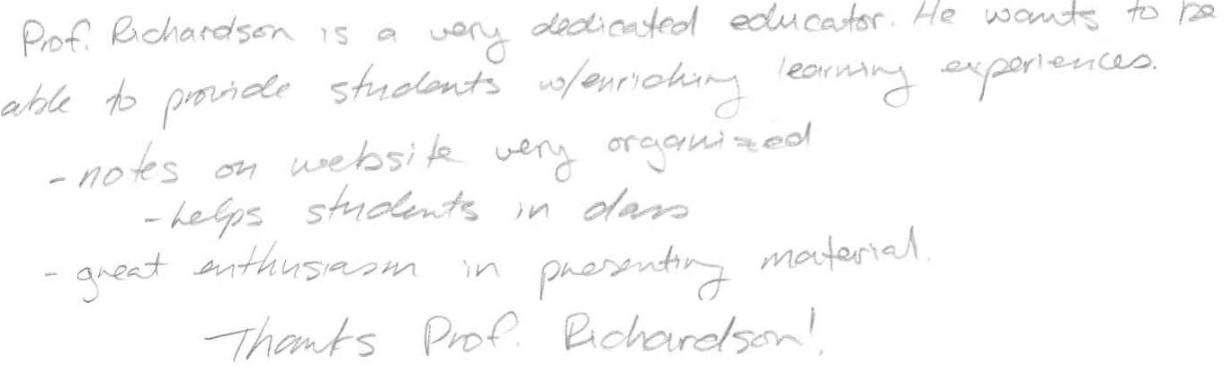 Prof. Richardson is a very dedicated educator. He wants to be
able to provide students w/enriching learning experiences.
- notes on website very organized
- helps students in class
- great enthusiasm in presenting material.
Thanks Prof. Richardson!